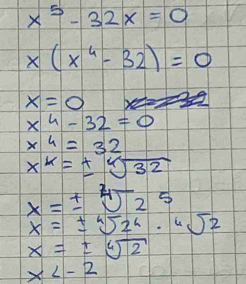 x⁵ - 32x = 0
x(x⁴ - 32) = 0
x = 0
x⁴ - 32 = 0
x⁴ = 32
x⁴ = ± ⁴√32
x = ± ⁴√2⁵
x = ± ⁴√2⁴ · ⁴√2
x = ± ⁴√2
x < -2